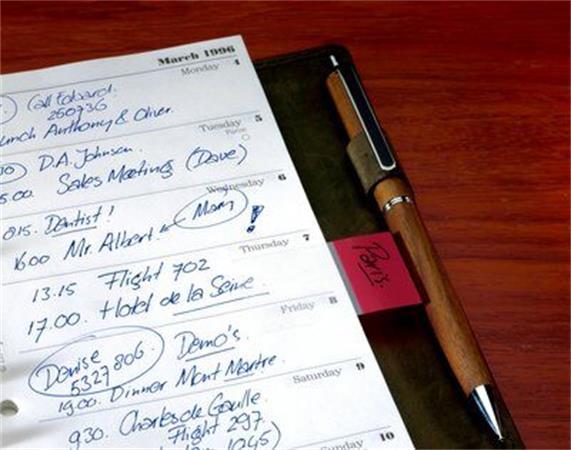 March 1996
Monday 4
Call Edward.
250736
Lunch Anthony & Oliver.
Tuesday 5
D.A. Johnson.
Sales Meeting (Dave)
Wednesday 6
815. Dentist!
Mam
1600 Mr. Albert. !
Thursday 7
13.15 Flight 702
17.00. Hotel de la Seine
Paris.
Friday 8
Denise
5327806.
Demo's.
1900. Dinner Mont Martre.
Saturday 9
930. Charles de Gaulle.
Flight 297.
1245)
Sunday 10